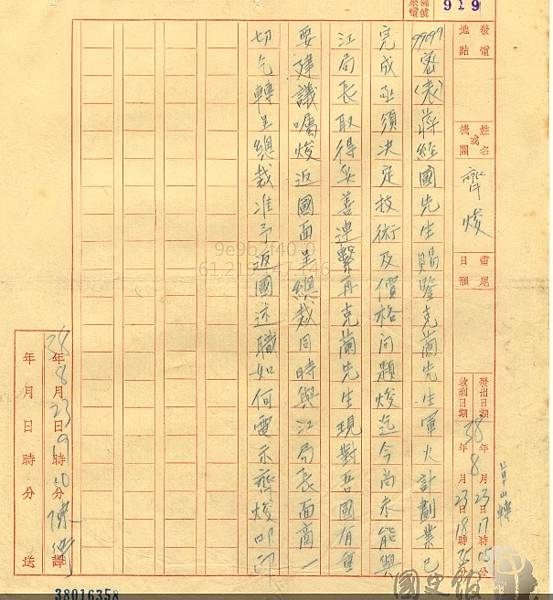 919
發電地點
姓名或機關 齊焌
電尾日韻
發出日期 38年8月23日17時15分
收到日期 年8月23日18時25分
9999密(表)蔣經國先生賜鑒克蘭先生軍火計劃業已
完成亟須決定技術及價格問題焌迄今尚未能與
江局長取得妥善連繫再克蘭先生現對吾國有重
要建議囑焌返國面呈總裁同時與江局長面商一
切乞轉呈總裁准予返國述職如何電示齊焌叩
38年8月23日19時10分陳 譯
年月日時分送
38016358
國史館